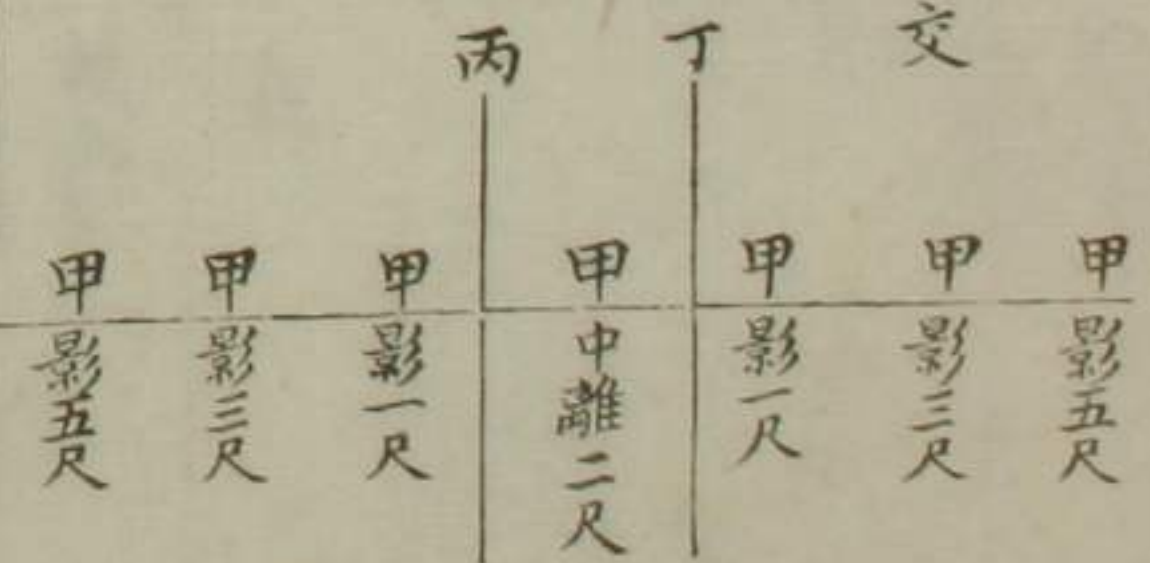 交
丁
丙
甲 影五尺
甲 影三尺
甲 影一尺
甲 中離二尺
甲 影一尺
甲 影三尺
甲 影五尺